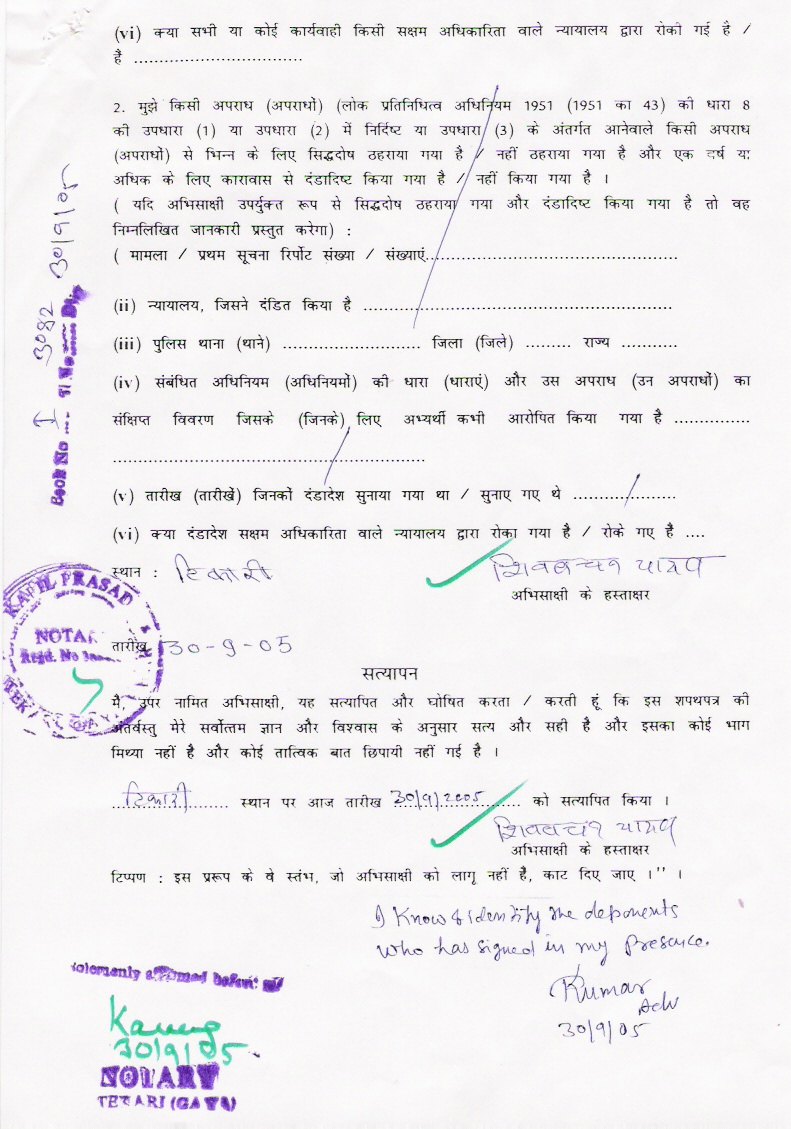 (vi) क्या सभी या कोई कार्यवाही किसी सक्षम अधिकारिता वाले न्यायालय द्वारा रोकी गई है /
है ................................
2. मुझे किसी अपराध (अपराधों) (लोक प्रतिनिधित्व अधिनियम 1951 (1951 का 43) की धारा 8
की उपधारा (1) या उपधारा (2) में निर्दिष्ट या उपधारा (3) के अंतर्गत आनेवाले किसी अपराध
(अपराधों) से भिन्न के लिए सिद्धदोष ठहराया गया है / नहीं ठहराया गया है और एक वर्ष या
अधिक के लिए कारावास से दंडादिष्ट किया गया है / नहीं किया गया है ।
( यदि अभिसाक्षी उपर्युक्त रूप से सिद्धदोष ठहराया गया और दंडादिष्ट किया गया है तो वह
निम्नलिखित जानकारी प्रस्तुत करेगा) :
( मामला / प्रथम सूचना रिर्पोट संख्या / संख्याएं................................................
(ii) न्यायालय, जिसने दंडित किया है ...........................................................
(iii) पुलिस थाना (थाने) .......................... जिला (जिले) ......... राज्य ...........
(iv) संबंधित अधिनियम (अधिनियमों) की धारा (धाराएं) और उस अपराध (उन अपराधों) का
संक्षिप्त विवरण जिसके (जिनके) लिए अभ्यर्थी कभी आरोपित किया गया है ...............
............................................................
(v) तारीख (तारीखें) जिनकों दंडादेश सुनाया गया था / सुनाए गए थे ....................
(vi) क्या दंडादेश सक्षम अधिकारिता वाले न्यायालय द्वारा रोका गया है / रोके गए है ....
स्थान : टिकारी
शिवबचन यादव
अभिसाक्षी के हस्ताक्षर
तारीख 30-9-05
सत्यापन
मै, उपर नामित अभिसाक्षी, यह सत्यापित और घोषित करता / करती हूं कि इस शपथपत्र की
अंतर्वस्तु मेरे सर्वोत्तम ज्ञान और विश्वास के अनुसार सत्य और सही है और इसका कोई भाग
मिथ्या नहीं है और कोई तात्विक बात छिपायी नहीं गई है ।
टिकारी स्थान पर आज तारीख 30/9/2005 को सत्यापित किया ।
शिवबचन यादव
अभिसाक्षी के हस्ताक्षर
टिप्पण : इस प्ररूप के वे स्तंभ, जो अभिसाक्षी को लागू नहीं है, काट दिए जाए ।'' ।
I Know & identify the deponents
who has signed in my presence.
Kumar
Adv
30/9/05
Solemenly affirmed before me
30/9/05
NOTARY
TEKARI (GAYA)
Book No I Sl. No 3082 Dt. 30/9/05
KAPIL PRASAD
NOTAR
Regd. No